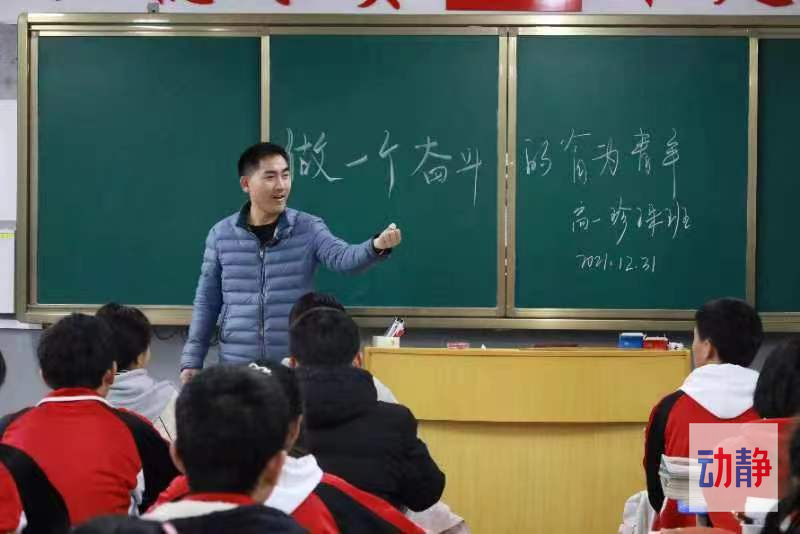 做一个奋斗的有为青年
高一珍珠班
2021.12.31
动静